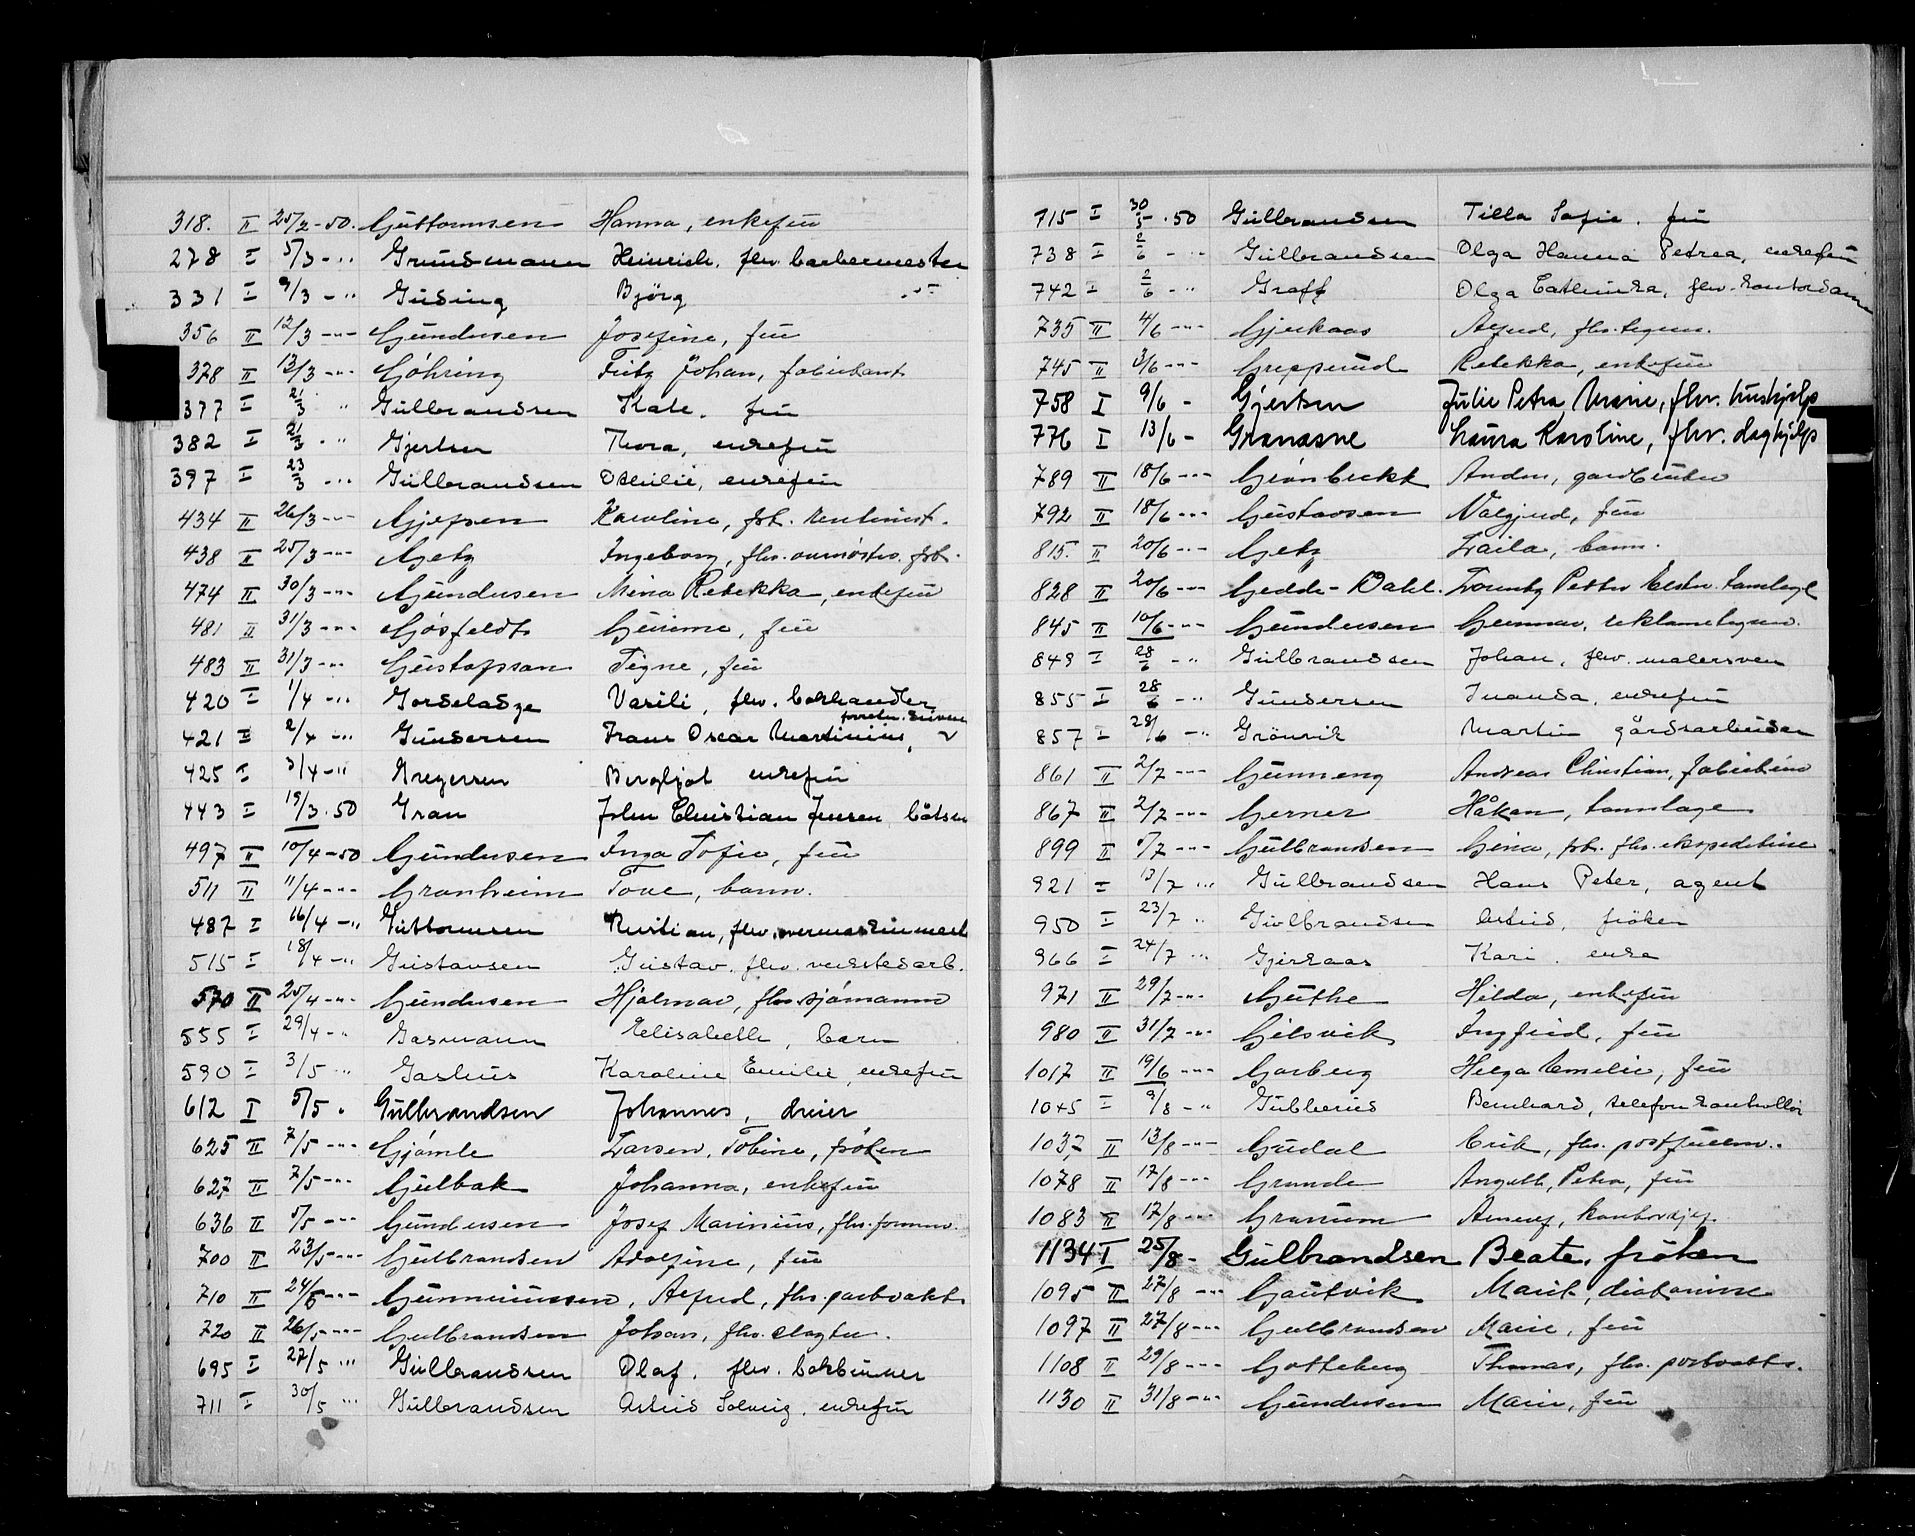 318. II 25/2 - 50. Guttormsen Hanna, enkefru
278 I 5/3 - " Grundmann Heinrich, fhv. barbermester
331 I 9/3 - " Gusing Björg - " -
356 II 12/3 - " - Gundersen Josefine, fru
378 II 13/3 - " - Göhring Fritz Johan, fabrikant
377 I 21/3 " Gulbrandsen Kate. fru
382 I 21/3 - " Gjertsen Thora, enkefru
397 I 23/3 - " Gulbrandsen Othilie, enkefru
434 II 26/3 - " - Gjepsen Karoline, frk. rentenist.
438 II 25/3 - " - Getz Ingeborg, fhv. frk.
474 II 30/3 - " - Gundersen Mina Rebekka, enkefru
481 II 31/3 - " - Gjøsfeldt fru
483 II 31/3 - " - Gustafsson Signe, fru
420 I 1/4 - " Gordeladze Vasili, fhv. bokhandler
421 I 2/4 - " Gundersen Frans Oscar Martinius, forretn.driven
425 I 3/4 - " Gregersen Bergljot enkefru
443 I 19/3 . 50 Gran John Christian Jensen båtsm
497 II 10/4 - 50 Gundersen Inga Sofie, fru
511 II 11/4 - " - Granheim Tove, barn.
487 I 16/4 - " Guttormsen Kristian, fhv. overmaskinmest
515 I 18/4 - " Gustavsen Gustav. fhv. verkstedarb.
570 II 25/4 - " - Gundersen Hjalmar, fhv. sjömann
555 I 29/4 - " Gasmann Elisabeth, barn
590 I 3/5 " Gashus Karoline Emilie, enkefru
612 I 5/5 " Gulbrandsen Johannes, dreier
625 II 7/5 - " - Gjömle Larsen, Tobine, fröken
627 II 7/5 - " - Gulbak Johanna, enkefru
636 II 5/5 - " - Gundersen Josef Marinius, fhv. formm.
700 II 23/5 - " - Gulbrandsen Adolfine, fru
710 II 24/5 - " - Gunnerussen, Alfred, fhv. parkvakt
720 II 26/5 - " - Gulbrandsen Johan, fhv. slagter.
695 I 27/5 " Gulbrandsen Olaf. fhv. bokbinner
711 I 30/5 " Gulbrandsen Astrid Solveig. enkefru
715 I 30/5 . 50 Gulbrandsen Tilla Sofie. fru
738 I 2/6 - " Gulbrandsen Olga Hanna Petrea, enkefru
742 I 2/6 - " Graff Olga Cathinka, fhv. kontordame
735 II 4/6 - " - Gjerkaas Alfred, fhv.
745 II 3/6 - " - Grepperud Rebekka, enkefru
758 I 9/6 - Gjertsen Julie Petra Marie, fhv. hushjelp
776 I 13/6 - Granasne Laura Karoline, fhv. daghjelp
789 II 18/6 - " - Grönbeckk Anders, gardbruker
792 II 18/6 - " - Gustavsen Valgjerd, fru
815. II 20/6 - " - Getz Laila, barn.
828 II 20/6 - " - Gedde-Dahl. Lorentz Petter Elster. tannlege
845 II 10/6 - " - Gundersen Gunnar, reklametegner.
849 I 28/6 - " Gulbrandsen Johan, fhv. malersven
855 I 28/6 - " Gundersen Inanda, enkefru
857 I 28/6 - " Grönvik Martin gårdsarbeider
861 II 2/7 - " - Gunneng Andreas Christian, fabrikeier
867 II 2/7 - " - Gerner Håkon, tannlege
899 II 5/7 - " - Gulbrandsen Gina, frk. fhv. ekspeditrise
921 I 13/7 " Gulbrandsen Hans Peter, agent
950 I 23/7 " Gulbrandsen Astrid, fröken
966 I 24/7 " Gjerkaas Kari. enke
971 II 29/7 - " - Guthe Hilda, enkefru
980 II 31/7 - " - Gilsvik Ingfrid, fru
1017 II 19/6 - " - Garberg Helga Emelie, fru
1045 I 9/8 - " Gubberud Bernhard, telefonkontrollör
1037 II 13/8 - " - Gudal Erik, fhv. postfullm.
1078 II 17/8 - " - Grande Angell, Petra, fru
1083 II 17/8 - " - Granum kontorsjef.
1134 I 25/8 - Gulbrandsen Beate. fröken
1095 II 27/8 - " - Gautvik Marit, diakonisse
1097 II 27/8 - " - Gulbrandsen Marie, fru
1108 II 29/8 - " - Gotteberg Thomas, fhv. portvakt.
1130 II 31/8 - " - Gundersen Marie, fru